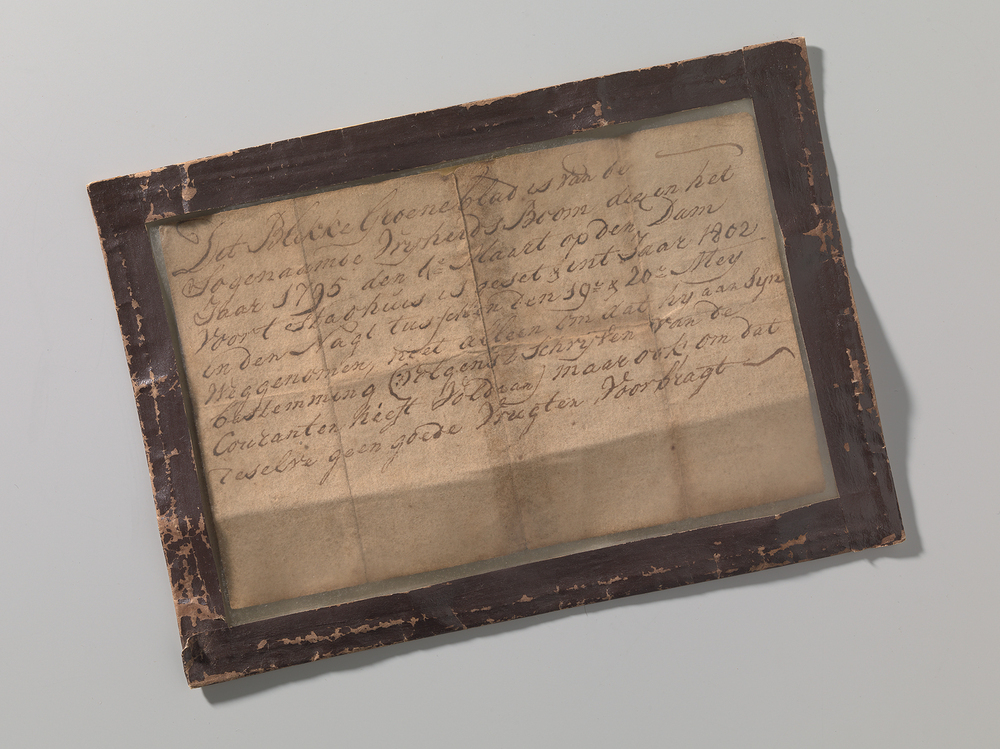 Dit Blikke Groene blad is van de
Sogenaamde Vryheids Boom die in het
Jaar 1795 den 4e Maart op den Dam
Voort Stadhuis is geset & int Jaar 1802
in den Nagt tusschen den 19e & 20e Mey
Weggenomen, niet alleen om dat hy aan Syn
bestemming (Volgens 't schryven van de
Couranten heeft Voldaan) maar ook om dat
deselve geen goede Vrugten Voorbragt